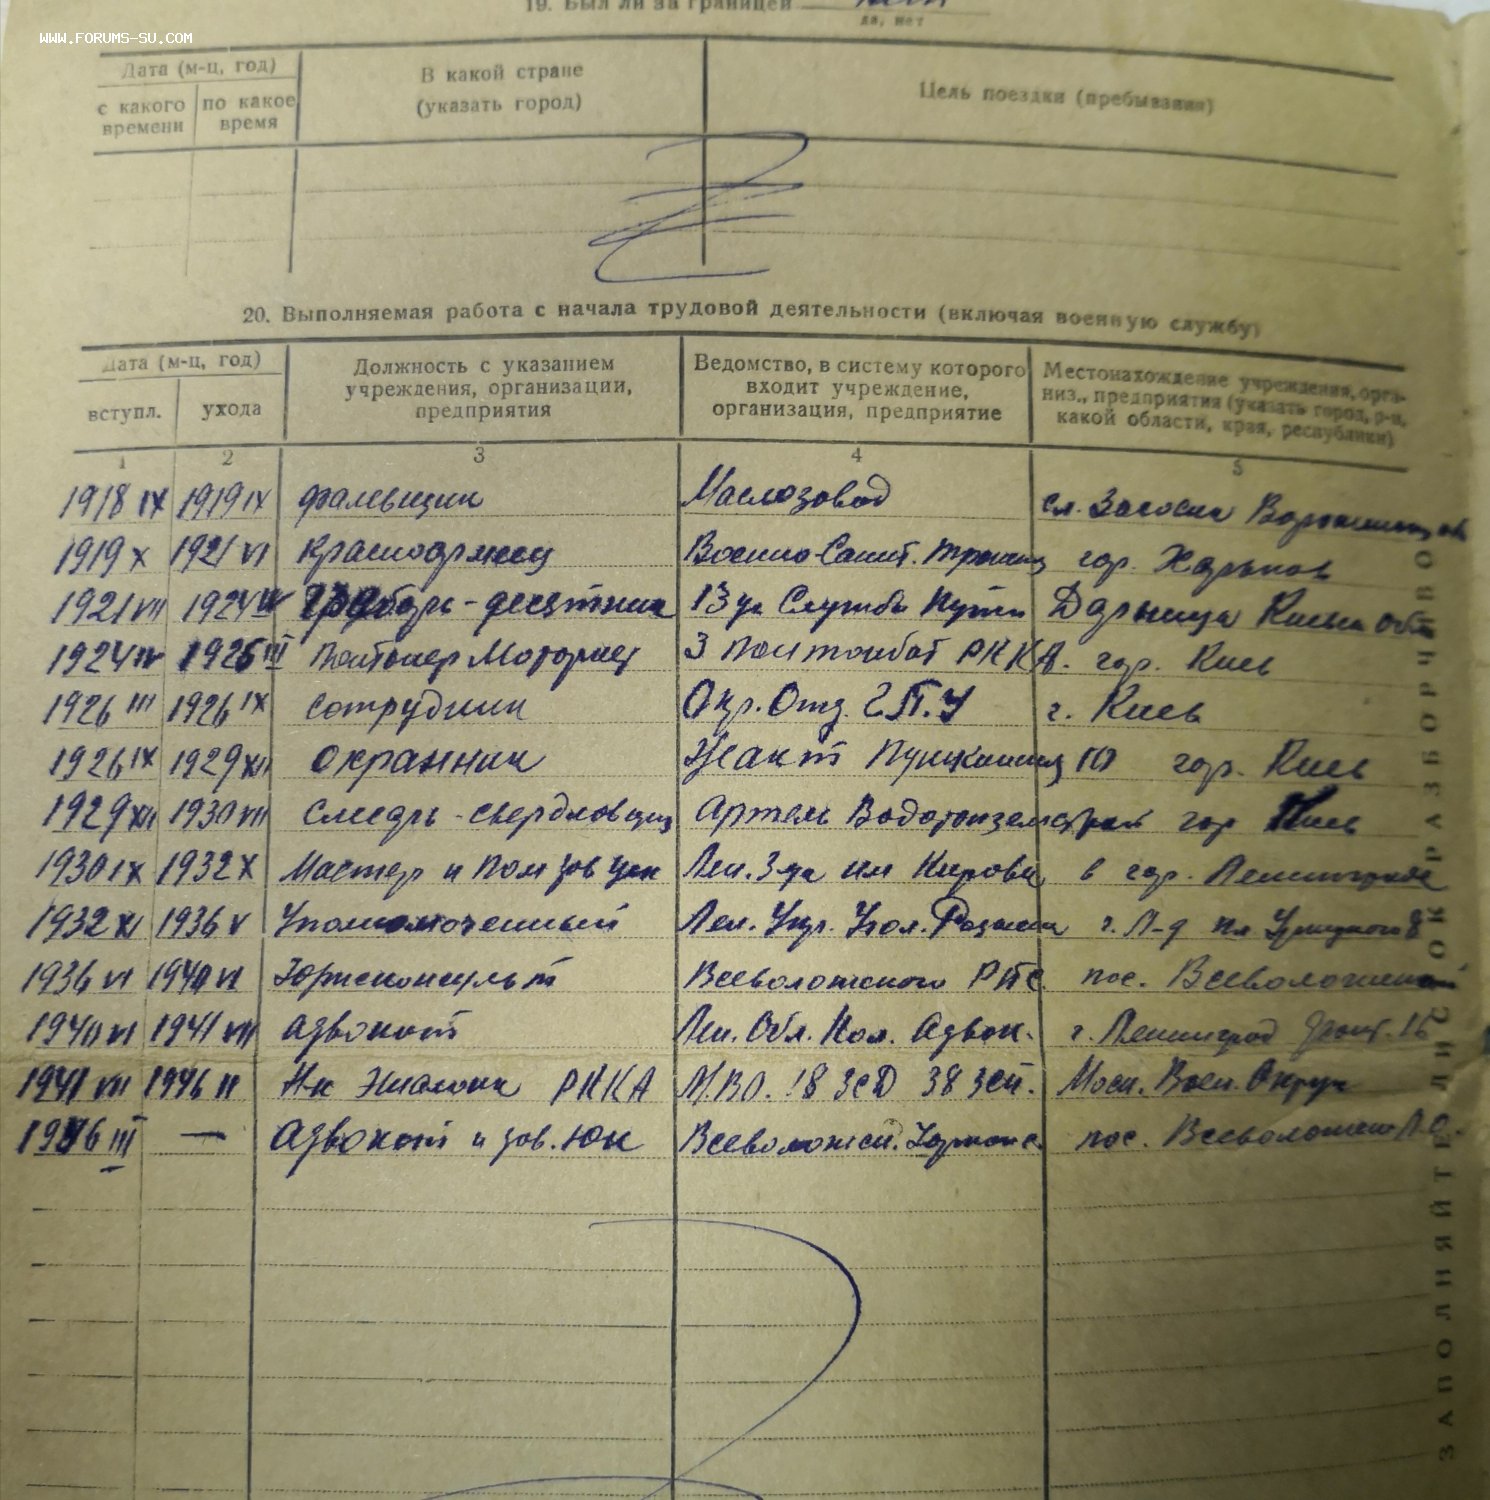 WWW.FORUMS-SU.COM
19. Был ли за границей
да, нет
Дата (м-ц, год)
с какого времени
по какое время
В какой стране
(указать город)
Цель поездки (пребывания)
20. Выполняемая работа с начала трудовой деятельности (включая военную службу)
Дата (м-ц, год)
вступл.
ухода
Должность с указанием
учреждения, организации,
предприятия
Ведомство, в систему которого
входит учреждение,
организация, предприятие
Местонахождение учреждения, орга-
низ., предприятия (указать город, р-н,
какой области, края, республики)
1 2 3 4 5
1918 IX 1919 IX Маслозавод сл.
1919 X 1921 VI красноармеец Военно-Санит. гор. Харьков
1921 VII 1924 десятник Службы Пути Дарница Киевск Обл
1924 1926 III Понтонер Моторист 3 Понтонбат РККА. гор. Киев
1926 III 1926 IX сотрудник Окр. Отд. Г.П.У г. Киев
1926 IX 1929 XII Охранник Жакт Пушкинская 10 гор. Киев
1929 XII 1930 VIII Слесарь-сверловщик Артель гор Киев
1930 IX 1932 X Мастер и Пом зав цех Лен. З-да им Кирова в гор. Ленинграде
1932 XI 1936 V Уполномоченный Лен. Упр. Угол. Розыска г. Л-д пл Урицкого 8
1936 VI 1940 VI Юрисконсульт Всеволожского РПС пос. Всеволожский
1940 VI 1941 VII адвокат Лен. Обл. Кол. Адвок. г. Ленинград 16
1941 VII 1946 II Н-к Эшалона РККА М.В.О. 18 ЗСД 38 ЗСП. Моск. Воен. Округ
1946 III — Адвокат и зав. Юк Всеволожск. Юрконс. пос. Всеволожский Л.О.
ЗАПОЛНЯЙТЕ ЛИСТОК РАЗБОРЧИВО